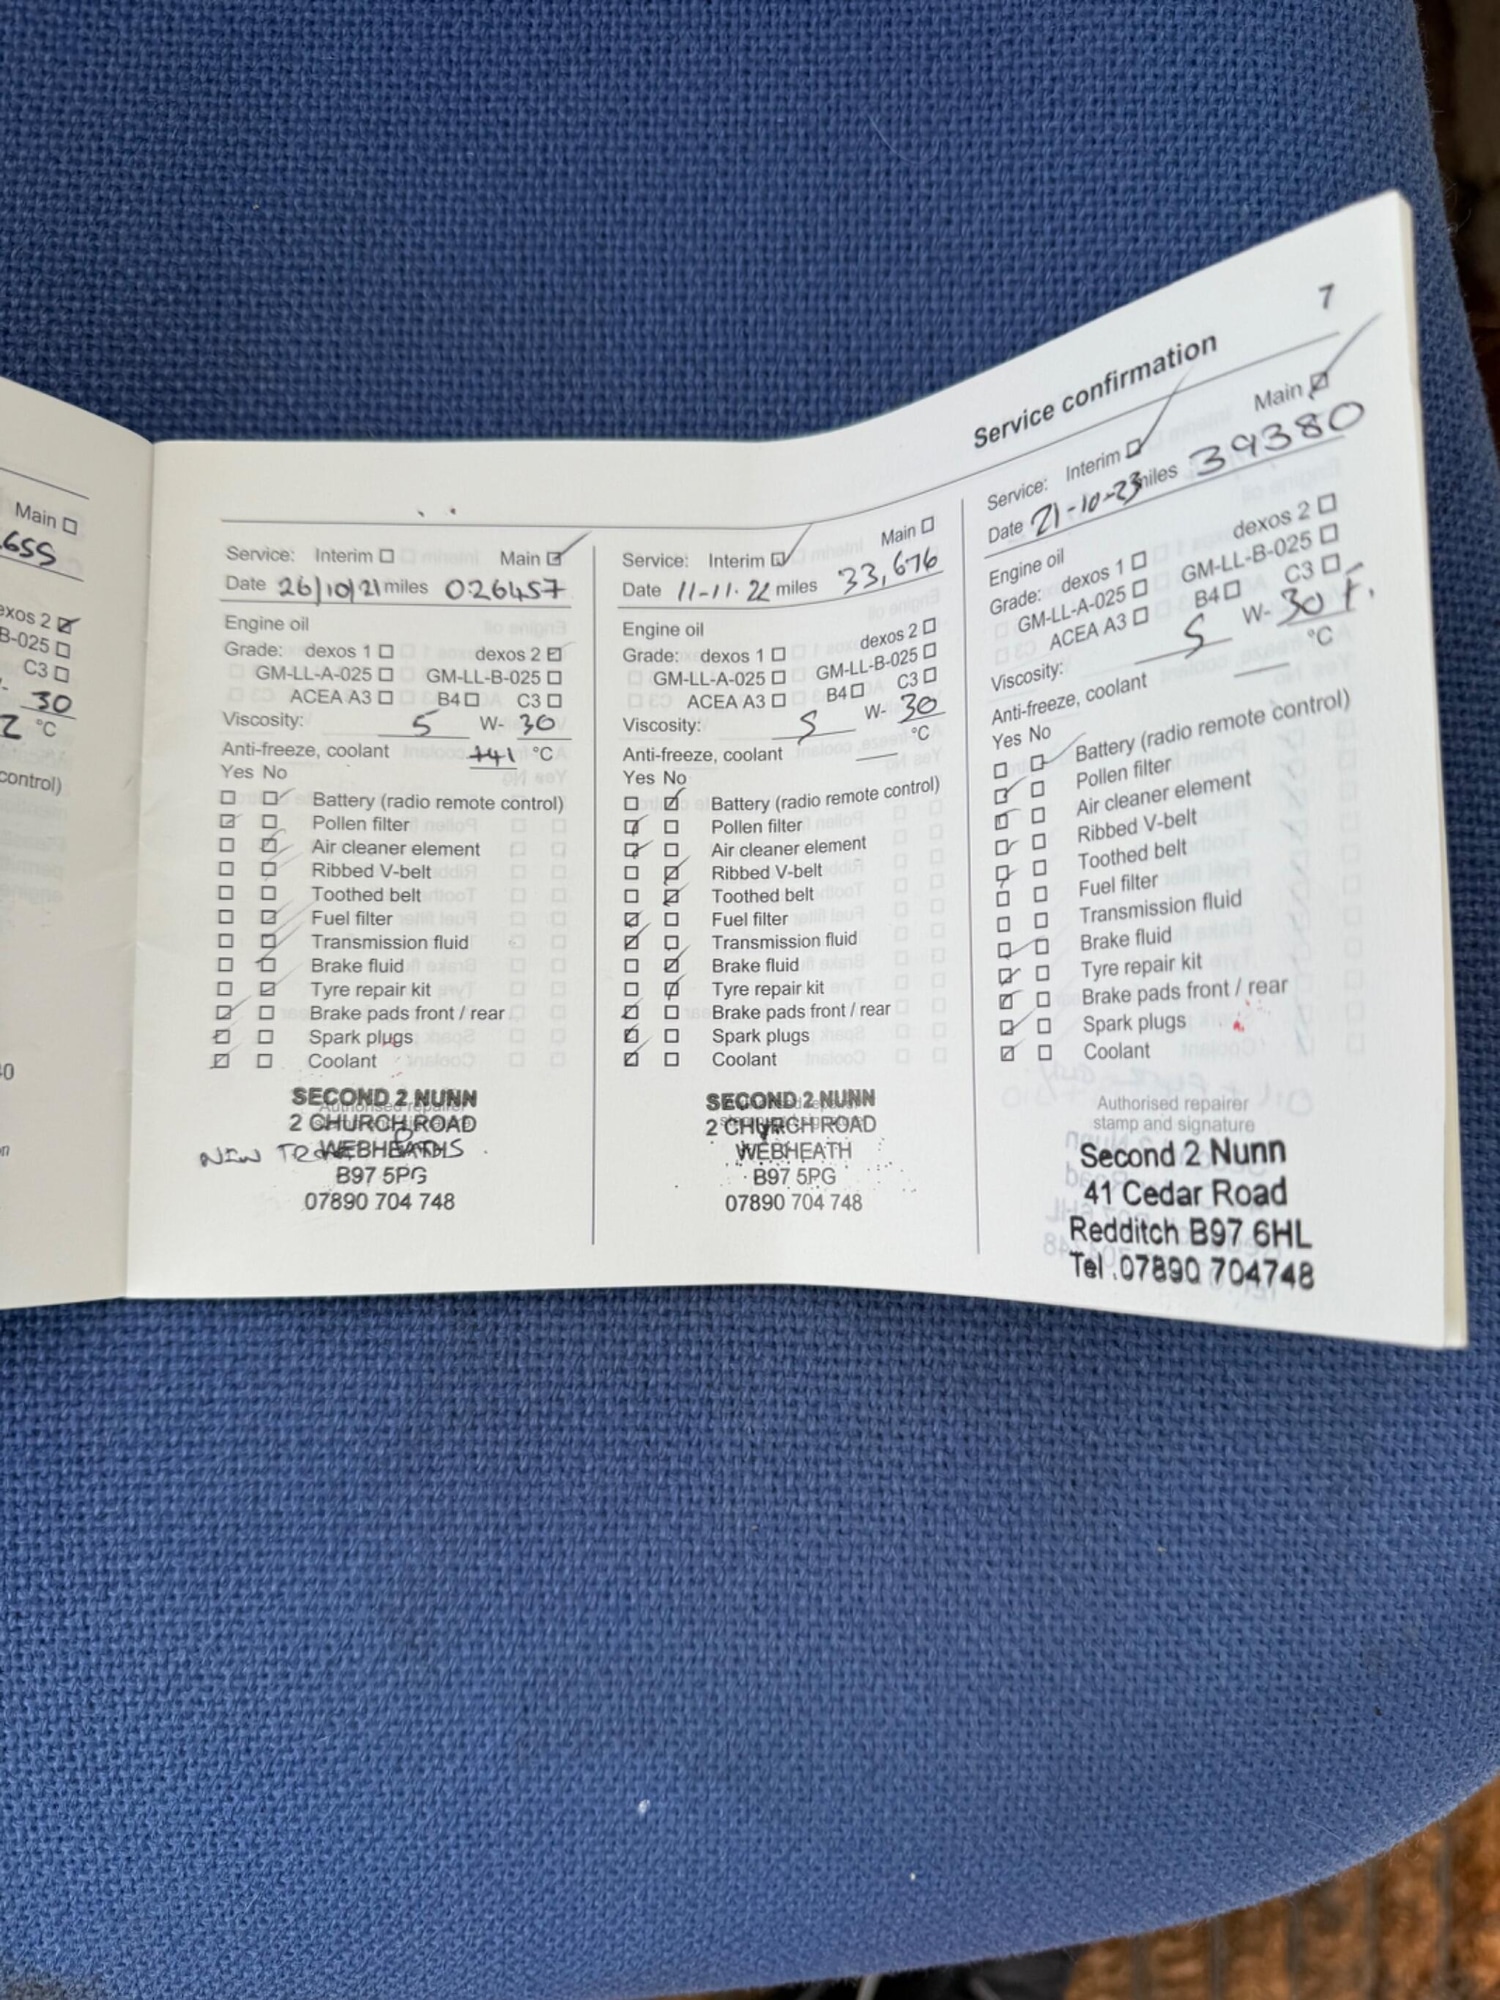 Main ☐
655
exos 2 ☑
B-025 ☐
C3 ☐
- 30
2 °C
control)
7
Service confirmation
Service: Interim ☐ Main ☑
Date 26/10/21 miles 026457
Engine oil
Grade: dexos 1 ☐ dexos 2 ☑
GM-LL-A-025 ☐ GM-LL-B-025 ☐
ACEA A3 ☐ B4 ☐ C3 ☐
Viscosity: 5 W- 30
Anti-freeze, coolant +41 °C
Yes No
☐ ☑ Battery (radio remote control)
☑ ☐ Pollen filter
☐ ☑ Air cleaner element
☐ ☑ Ribbed V-belt
☐ ☐ Toothed belt
☐ ☑ Fuel filter
☐ ☑ Transmission fluid
☐ ☑ Brake fluid
☐ ☑ Tyre repair kit
☑ ☐ Brake pads front / rear
☑ ☐ Spark plugs
☑ ☐ Coolant
Authorised repairer
SECOND 2 NUNN
2 CHURCH ROAD
WEBHEATH
B97 5PG
07890 704 748
Service: Interim ☑ Main ☐
Date 11-11-22 miles 33,676
Engine oil
Grade: dexos 1 ☐ dexos 2 ☐
GM-LL-A-025 ☐ GM-LL-B-025 ☐
ACEA A3 ☐ B4 ☐ C3 ☐
Viscosity: 5 W- 30
Anti-freeze, coolant °C
Yes No
☐ ☑ Battery (radio remote control)
☑ ☐ Pollen filter
☑ ☐ Air cleaner element
☐ ☑ Ribbed V-belt
☐ ☑ Toothed belt
☑ ☐ Fuel filter
☑ ☐ Transmission fluid
☐ ☑ Brake fluid
☐ ☑ Tyre repair kit
☑ ☐ Brake pads front / rear
☑ ☐ Spark plugs
☑ ☐ Coolant
SECOND 2 NUNN
2 CHURCH ROAD
WEBHEATH
B97 5PG
07890 704 748
Service: Interim ☑ Main ☑
Date 21-10-23 miles 39380
Engine oil
Grade: dexos 1 ☐ dexos 2 ☐
GM-LL-A-025 ☐ GM-LL-B-025 ☐
ACEA A3 ☐ B4 ☐ C3 ☐
Viscosity: 5 W- 30
Anti-freeze, coolant °C
Yes No
☐ ☑ Battery (radio remote control)
☑ ☐ Pollen filter
☑ ☐ Air cleaner element
☑ ☐ Ribbed V-belt
☑ ☐ Toothed belt
☐ ☐ Fuel filter
☐ ☐ Transmission fluid
☑ ☐ Brake fluid
☑ ☐ Tyre repair kit
☑ ☐ Brake pads front / rear
☑ ☐ Spark plugs
☑ ☐ Coolant
Authorised repairer
stamp and signature
Second 2 Nunn
41 Cedar Road
Redditch B97 6HL
Tel .07890 704748